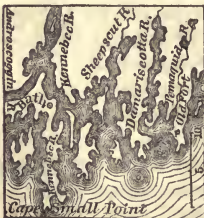 Androscoggin
Kennebec R.
Sheepscut R.
Damariscotta R.
Pemaquid R.
Old Fort
Bath
Kennebeck R.
Cape Small Point